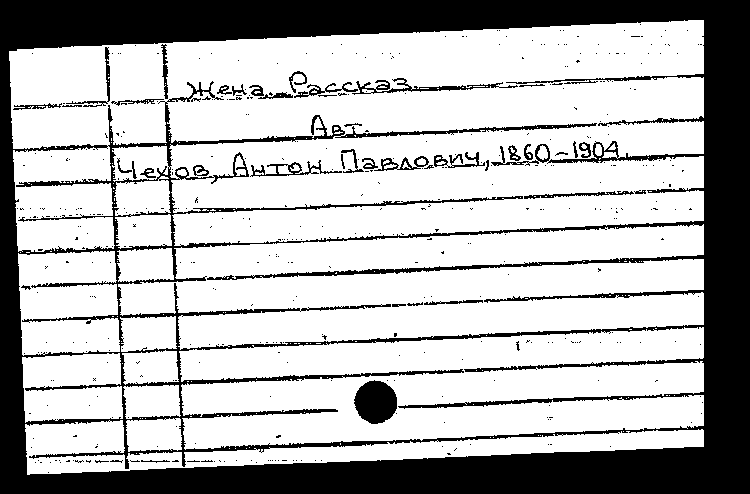 Жена. Рассказ.
Авт.
Чехов, Антон Павлович, 1860-1904.